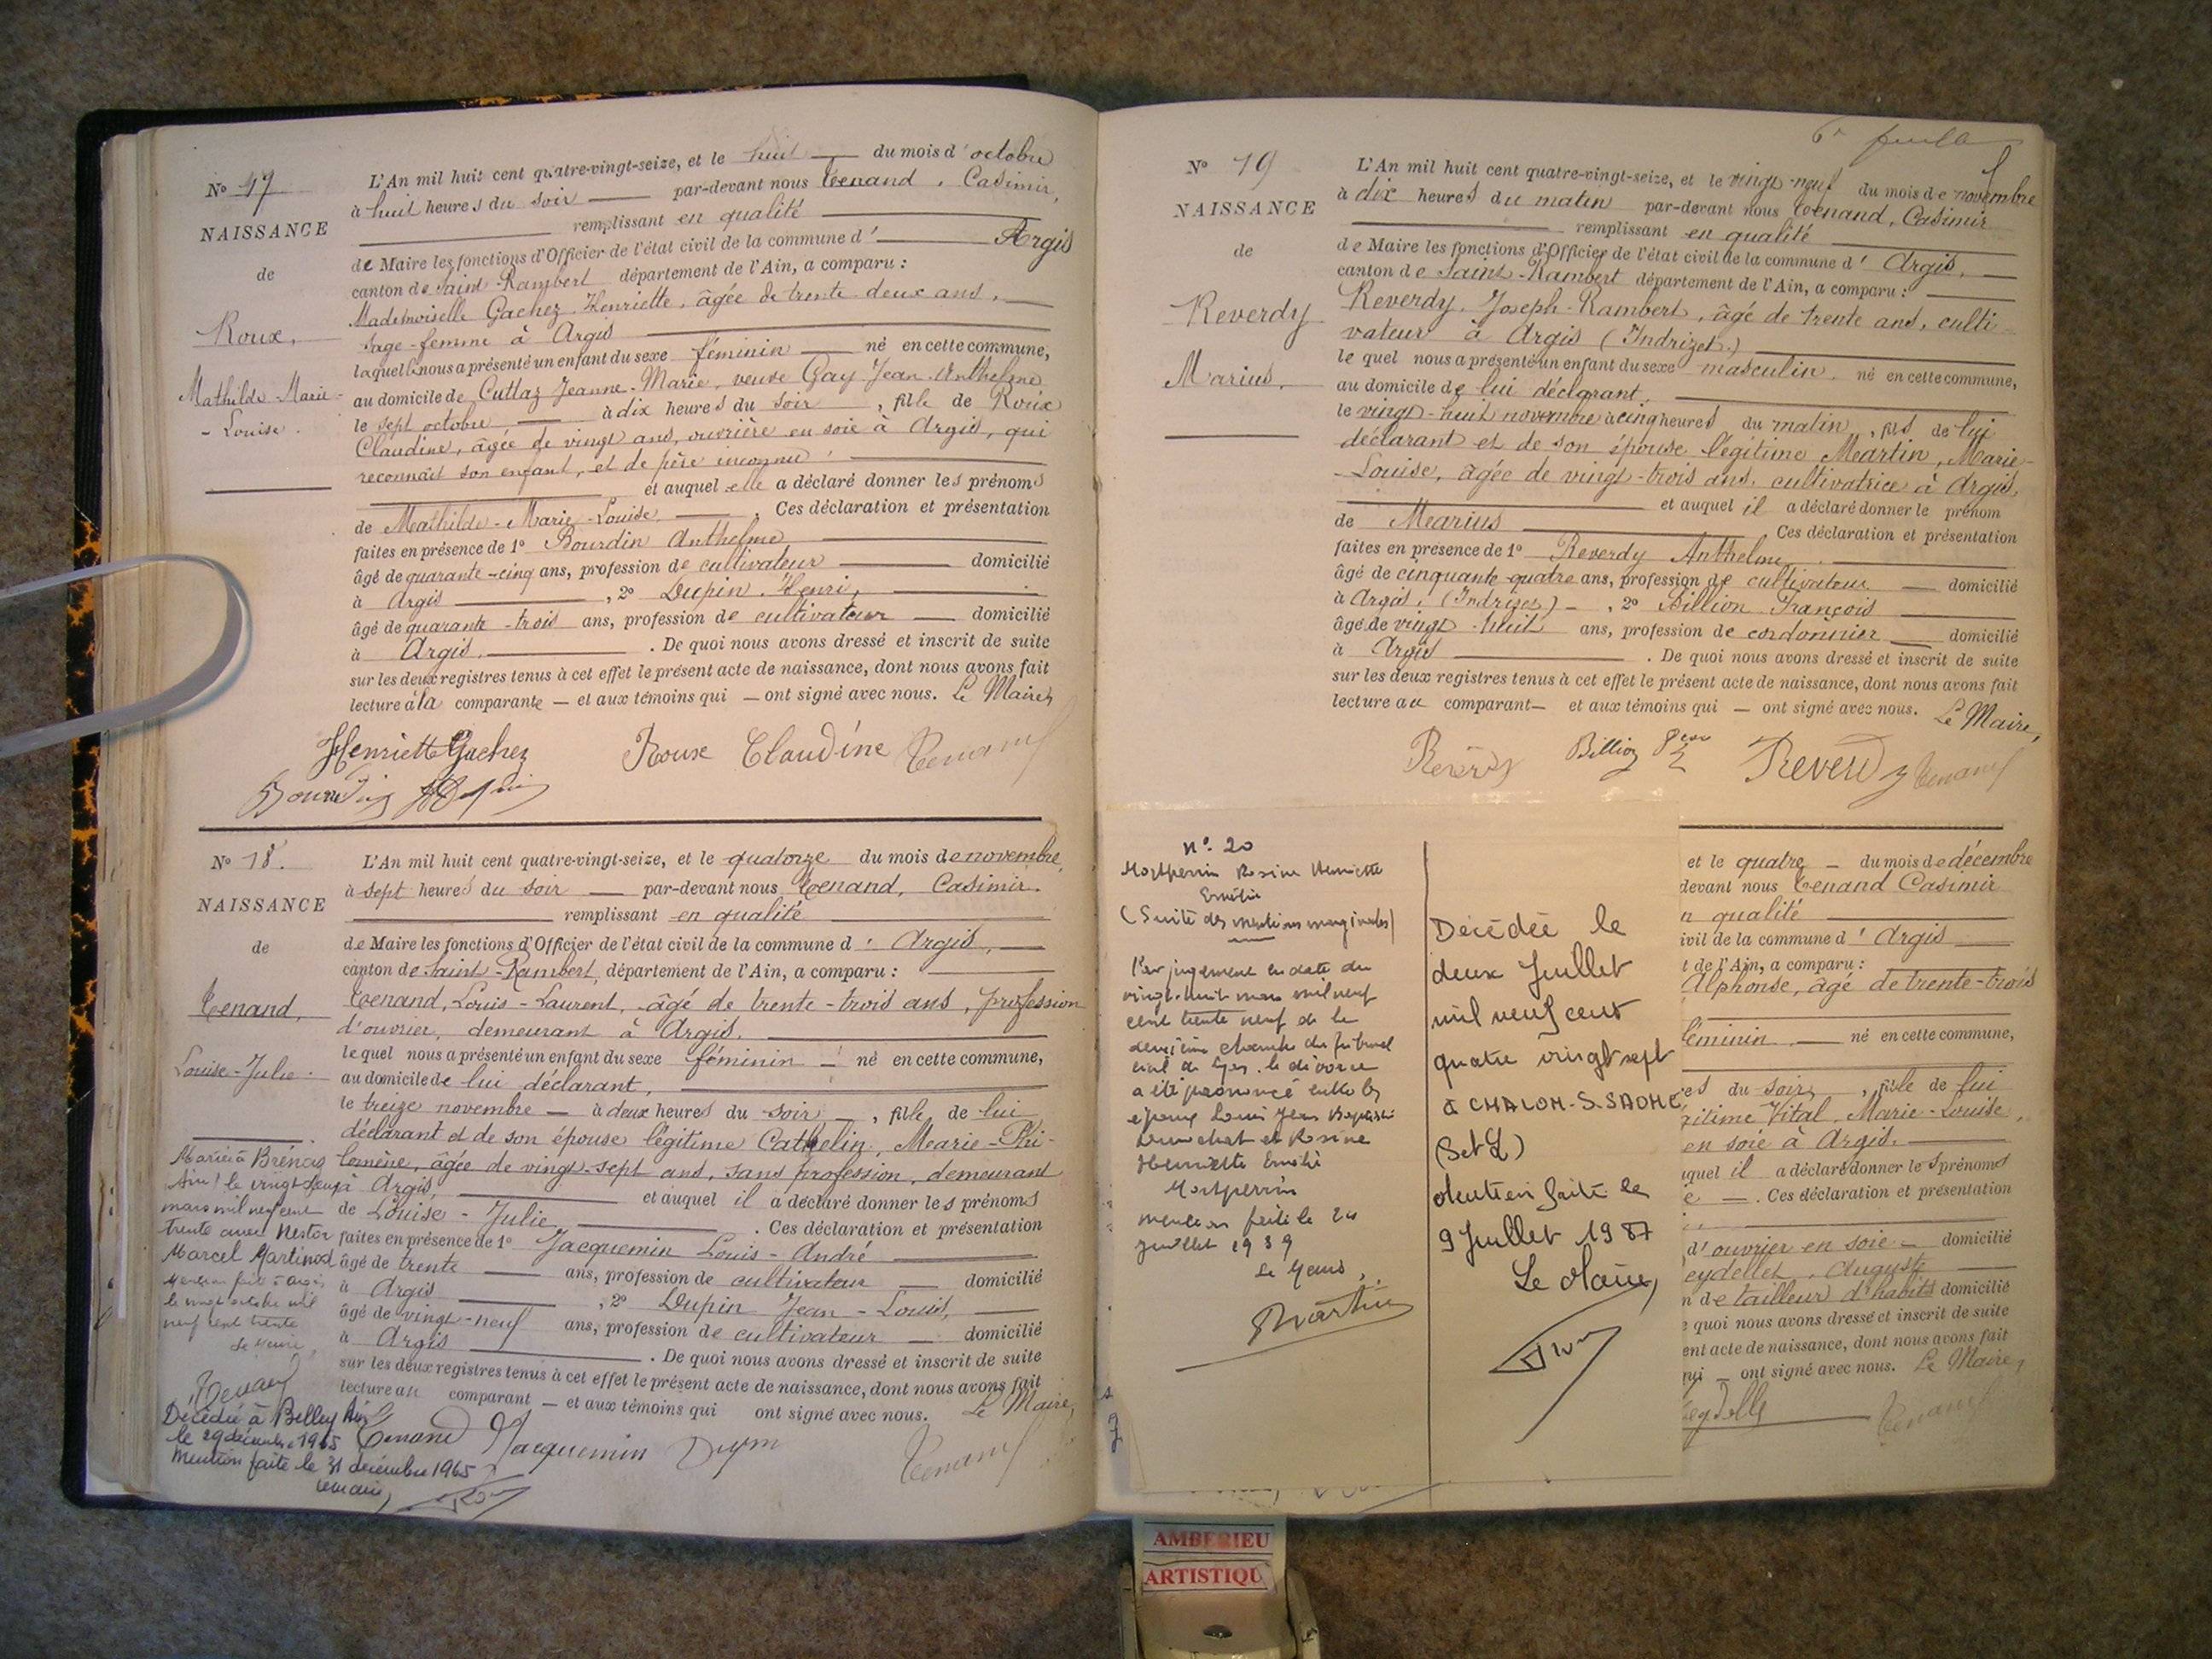 N° 17
NAISSANCE
de
Roux,
Mathilde-Marie-
-Louise.
L'An mil huit cent quatre-vingt-seize, et le huit du mois d'octobre
à huit heures du soir par-devant nous Tenand, Casimir,
remplissant en qualité
de Maire les fonctions d'Officier de l'état civil de la commune d' Argis
canton de Saint-Rambert département de l'Ain, a comparu :
Mademoiselle Gachez Henriette, âgée de trente deux ans,
sage-femme à Argis
laquelle nous a présenté un enfant du sexe féminin né en cette commune,
au domicile de Cuttaz Jeanne-Marie, veuve Gay Jean Anthelme
le sept octobre à dix heures du soir, fille de Roux
Claudine, âgée de vingt ans, ouvrière en soie à Argis, qui
reconnait son enfant, et de père inconnu.
et auquel elle a déclaré donner les prénoms
de Mathilde-Marie-Louise. Ces déclaration et présentation
faites en présence de 1° Bourdin Anthelme
âgé de quarante-cinq ans, profession de cultivateur domicilié
à Argis, 2° Dupin Henri,
âgé de quarante-trois ans, profession de cultivateur domicilié
à Argis. De quoi nous avons dressé et inscrit de suite
sur les deux registres tenus à cet effet le présent acte de naissance, dont nous avons fait
lecture à la comparante et aux témoins qui ont signé avec nous. Le Maire,
Henriette Gachez Roux Claudine Tenand
Bourdin
N° 18.
NAISSANCE
de
Tenand,
Louise-Julie.
L'An mil huit cent quatre-vingt-seize, et le quatorze du mois de novembre
à sept heures du soir par-devant nous Tenand, Casimir.
remplissant en qualité
de Maire les fonctions d'Officier de l'état civil de la commune d' Argis,
canton de Saint-Rambert, département de l'Ain, a comparu :
Tenand, Louis-Laurent, âgé de trente-trois ans, profession
d'ouvrier, demeurant à Argis.
lequel nous a présenté un enfant du sexe féminin né en cette commune,
au domicile de lui déclarant,
le treize novembre à deux heures du soir, fille de lui
déclarant et de son épouse légitime Cathelin, Marie-Phi-
lomène, âgée de vingt-sept ans, sans profession, demeurant
à Argis, et auquel il a déclaré donner les prénoms
de Louise-Julie. Ces déclaration et présentation
faites en présence de 1° Jacquemin Louis-André
âgé de trente ans, profession de cultivateur domicilié
à Argis, 2° Dupin Jean-Louis,
âgé de vingt-neuf ans, profession de cultivateur domicilié
à Argis. De quoi nous avons dressé et inscrit de suite
sur les deux registres tenus à cet effet le présent acte de naissance, dont nous avons fait
lecture au comparant et aux témoins qui ont signé avec nous. Le Maire,
Tenand Jacquemin Dupin Tenand
Mariée à Brénaz
Ain! le vingt
mars mil neuf cent
trente avec Nestor
Marcel Martinod
Mention faite à Argis
le vingt octobre mil
neuf cent trente
Le Maire,
Tenand
Décédée à Belley Ain
le 29 décembre 1965
Mention faite le 31 décembre 1965
Le Maire,
6e feuille
N° 19
NAISSANCE
de
Reverdy
Marius.
L'An mil huit cent quatre-vingt-seize, et le vingt-neuf du mois de novembre
à dix heures du matin par-devant nous Tenand, Casimir
remplissant en qualité
de Maire les fonctions d'Officier de l'état civil de la commune d' Argis,
canton de Saint-Rambert département de l'Ain, a comparu :
Reverdy, Joseph-Rambert, âgé de trente ans, culti-
vateur à Argis (Indrizet.)
lequel nous a présenté un enfant du sexe masculin, né en cette commune,
au domicile de lui déclarant.
le vingt-huit novembre à cinq heures du matin, fils de lui
déclarant et de son épouse légitime Martin, Marie-
-Louise, âgée de vingt-trois ans, cultivatrice à Argis,
et auquel il a déclaré donner le prénom
de Marius Ces déclaration et présentation
faites en présence de 1° Reverdy Anthelme
âgé de cinquante-quatre ans, profession de cultivateur domicilié
à Argis, (Indrizet), 2° Billion François
âgé de vingt-huit ans, profession de cordonnier domicilié
à Argis. De quoi nous avons dressé et inscrit de suite
sur les deux registres tenus à cet effet le présent acte de naissance, dont nous avons fait
lecture au comparant et aux témoins qui ont signé avec nous. Le Maire,
Reverdy Billion Reverdy Tenand
n° 20
Montperrin Rosine Henriette
Emélie
(Suite des mentions marginales)
Par jugement en date du
vingt-huit mars mil neuf
cent trente neuf de la
deuxième chambre du tribunal
civil de Lyon, le divorce
a été prononcé entre les
époux Louis Jean Baptiste
et Rosine
Henriette Emélie
Montperrin
mention faite le 24
juillet 1939
Le Maire,
Martin
Décédée le
deux Juillet
mil neuf cent
quatre vingt sept
à CHALON-S-SAONE
(S et L)
Mention faite le
9 Juillet 1987
Le Maire,
et le quatre du mois de décembre
devant nous Tenand Casimir
n qualité
ivil de la commune d' Argis
t de l'Ain, a comparu :
Alphonse, âgé de trente-trois
féminin né en cette commune,
res du soir, fille de lui
gitime Vital, Marie-Louise,
en soie à Argis.
uquel il a déclaré donner les prénoms
e. Ces déclaration et présentation
d'ouvrier en soie domicilié
eydellet, Auguste
n de tailleur d'habits domicilié
e quoi nous avons dressé et inscrit de suite
ent acte de naissance, dont nous avons fait
qui ont signé avec nous. Le Maire,
Tenand
AMBERIEU
ARTISTIQU